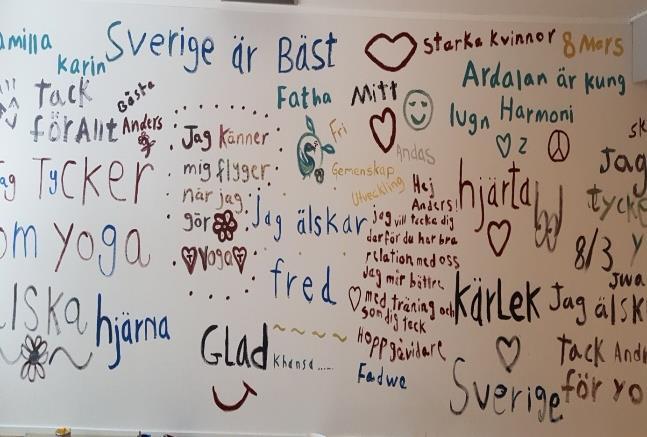 amilla
Karin
Sverige är Bäst
Starka kvinnor
8 Mars
Tack
för Allt
Bästa
Anders
Fatha
Mitt
Ardalan är kung
lugn Harmoni
Jag känner
mig flyger
när jag
gör
Yoga
Fri
Gemenskap
Utveckling
Andas
ag Tycker
om yoga
Jag älskar
fred
Hej
Anders!
Jag vill tacka dig
därför du har bra
relation med oss
Jag mår bättre
med träning och
som dig tack
Hoppgåvidare
Fadwa
hjärta
8/3
Jag
tycke
y
lska hjärna
Glad
Khansa......
kärlek
Jwa
Jag älsk
Tack And
för yo
Sverige